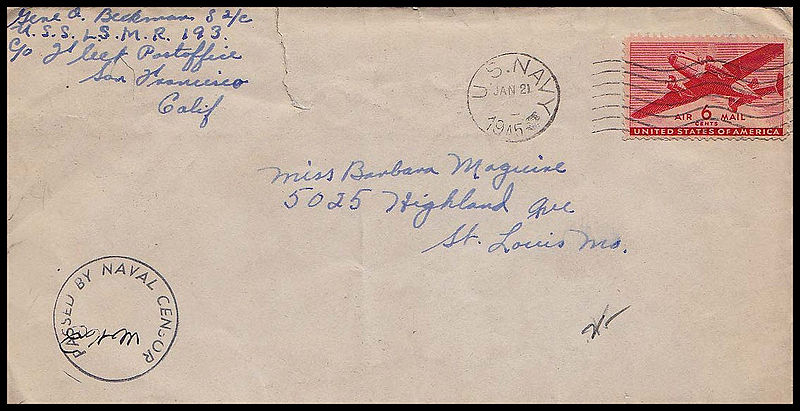 Gene A. Beckman S 2/c
U.S.S. L.S.M.R. 193.
C/o Fleet Postoffice
San Francisco
Calif
U.S. NAVY
JAN 21
1945
AIR 6 MAIL
CENTS
UNITED STATES OF AMERICA
Miss Barbara Maguire
5025 Highland Ave
St. Louis Mo.
PASSED BY NAVAL CENSOR